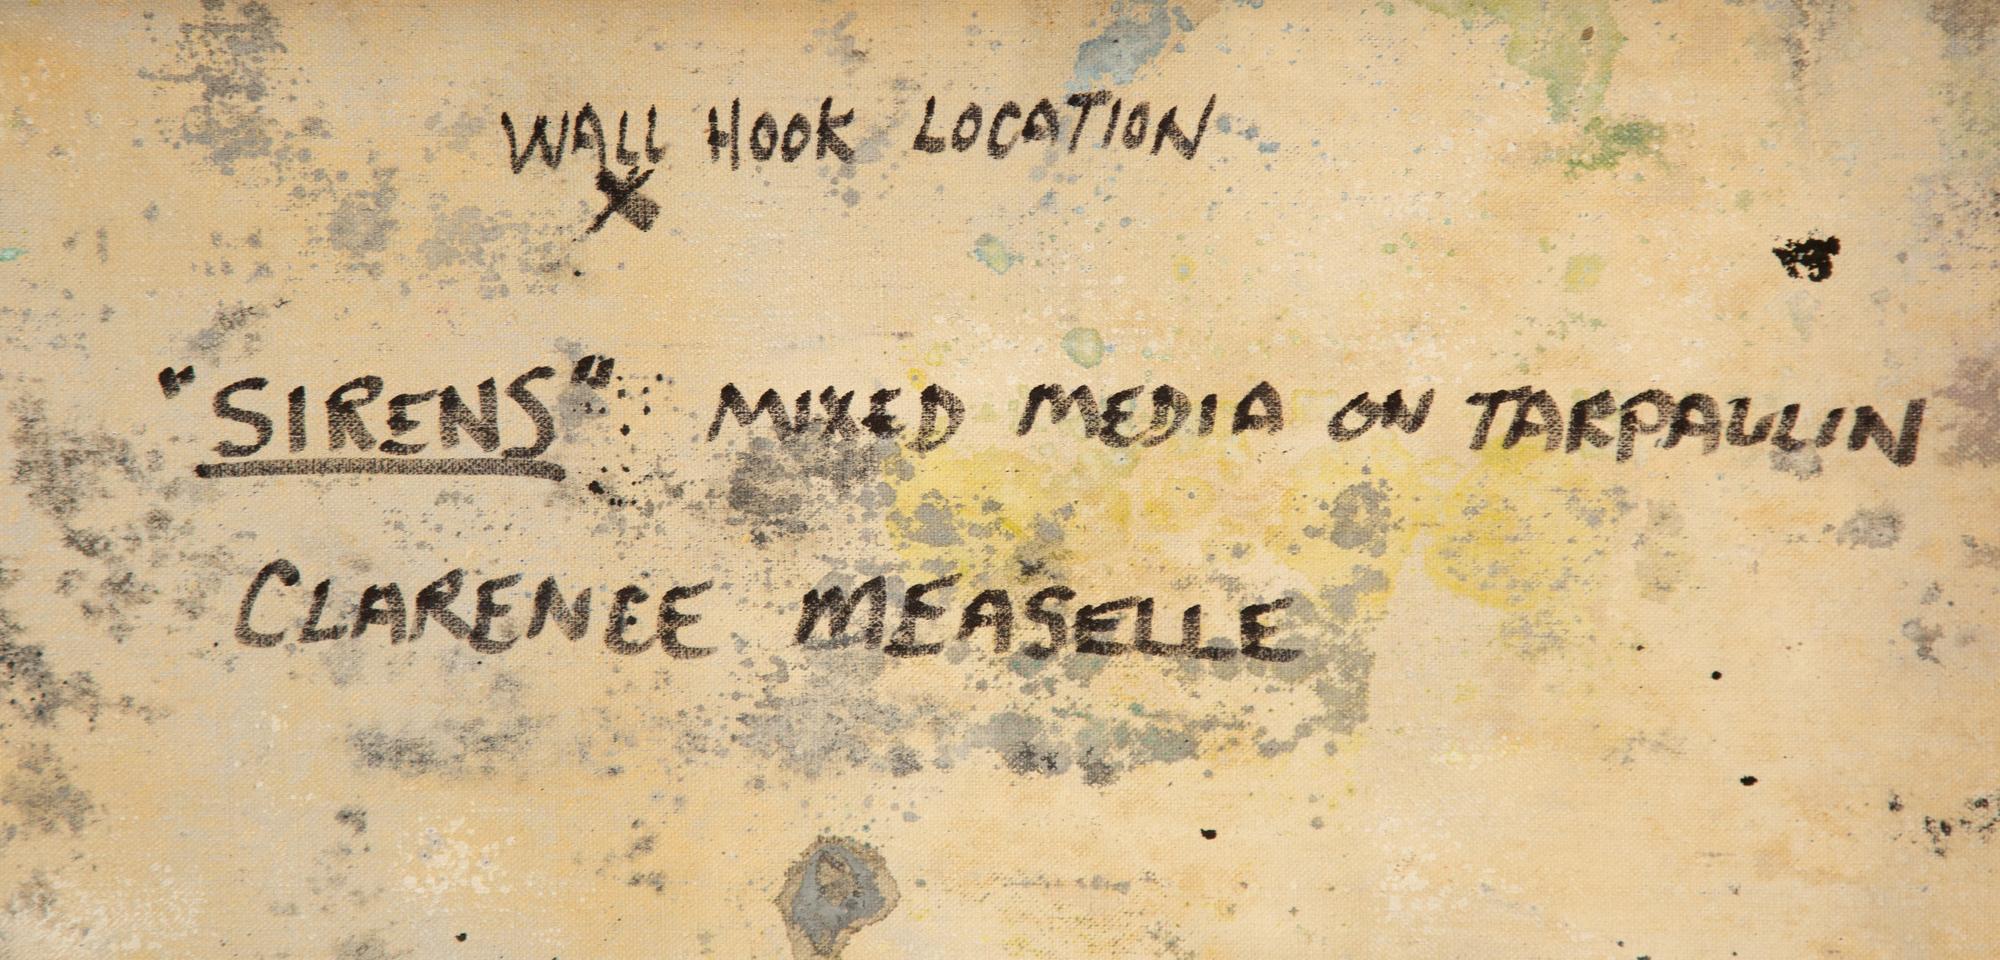 WALL HOOK LOCATION
X
"SIRENS" : MIXED MEDIA ON TARPAULIN
CLARENCE MEASELLE